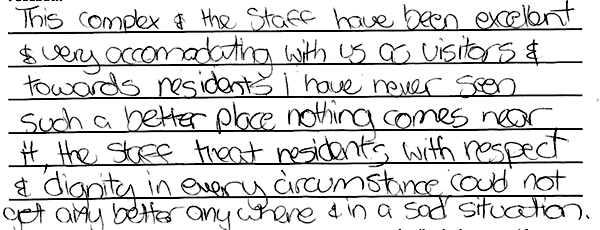 This complex & the Staff have been excellent
& very accomadating with us as visitors &
towards residents i have never seen
such a better place nothing comes near
it, the staff treat residents with respect
& dignity in every circumstance could not
get any better anywhere & in a sad situation.